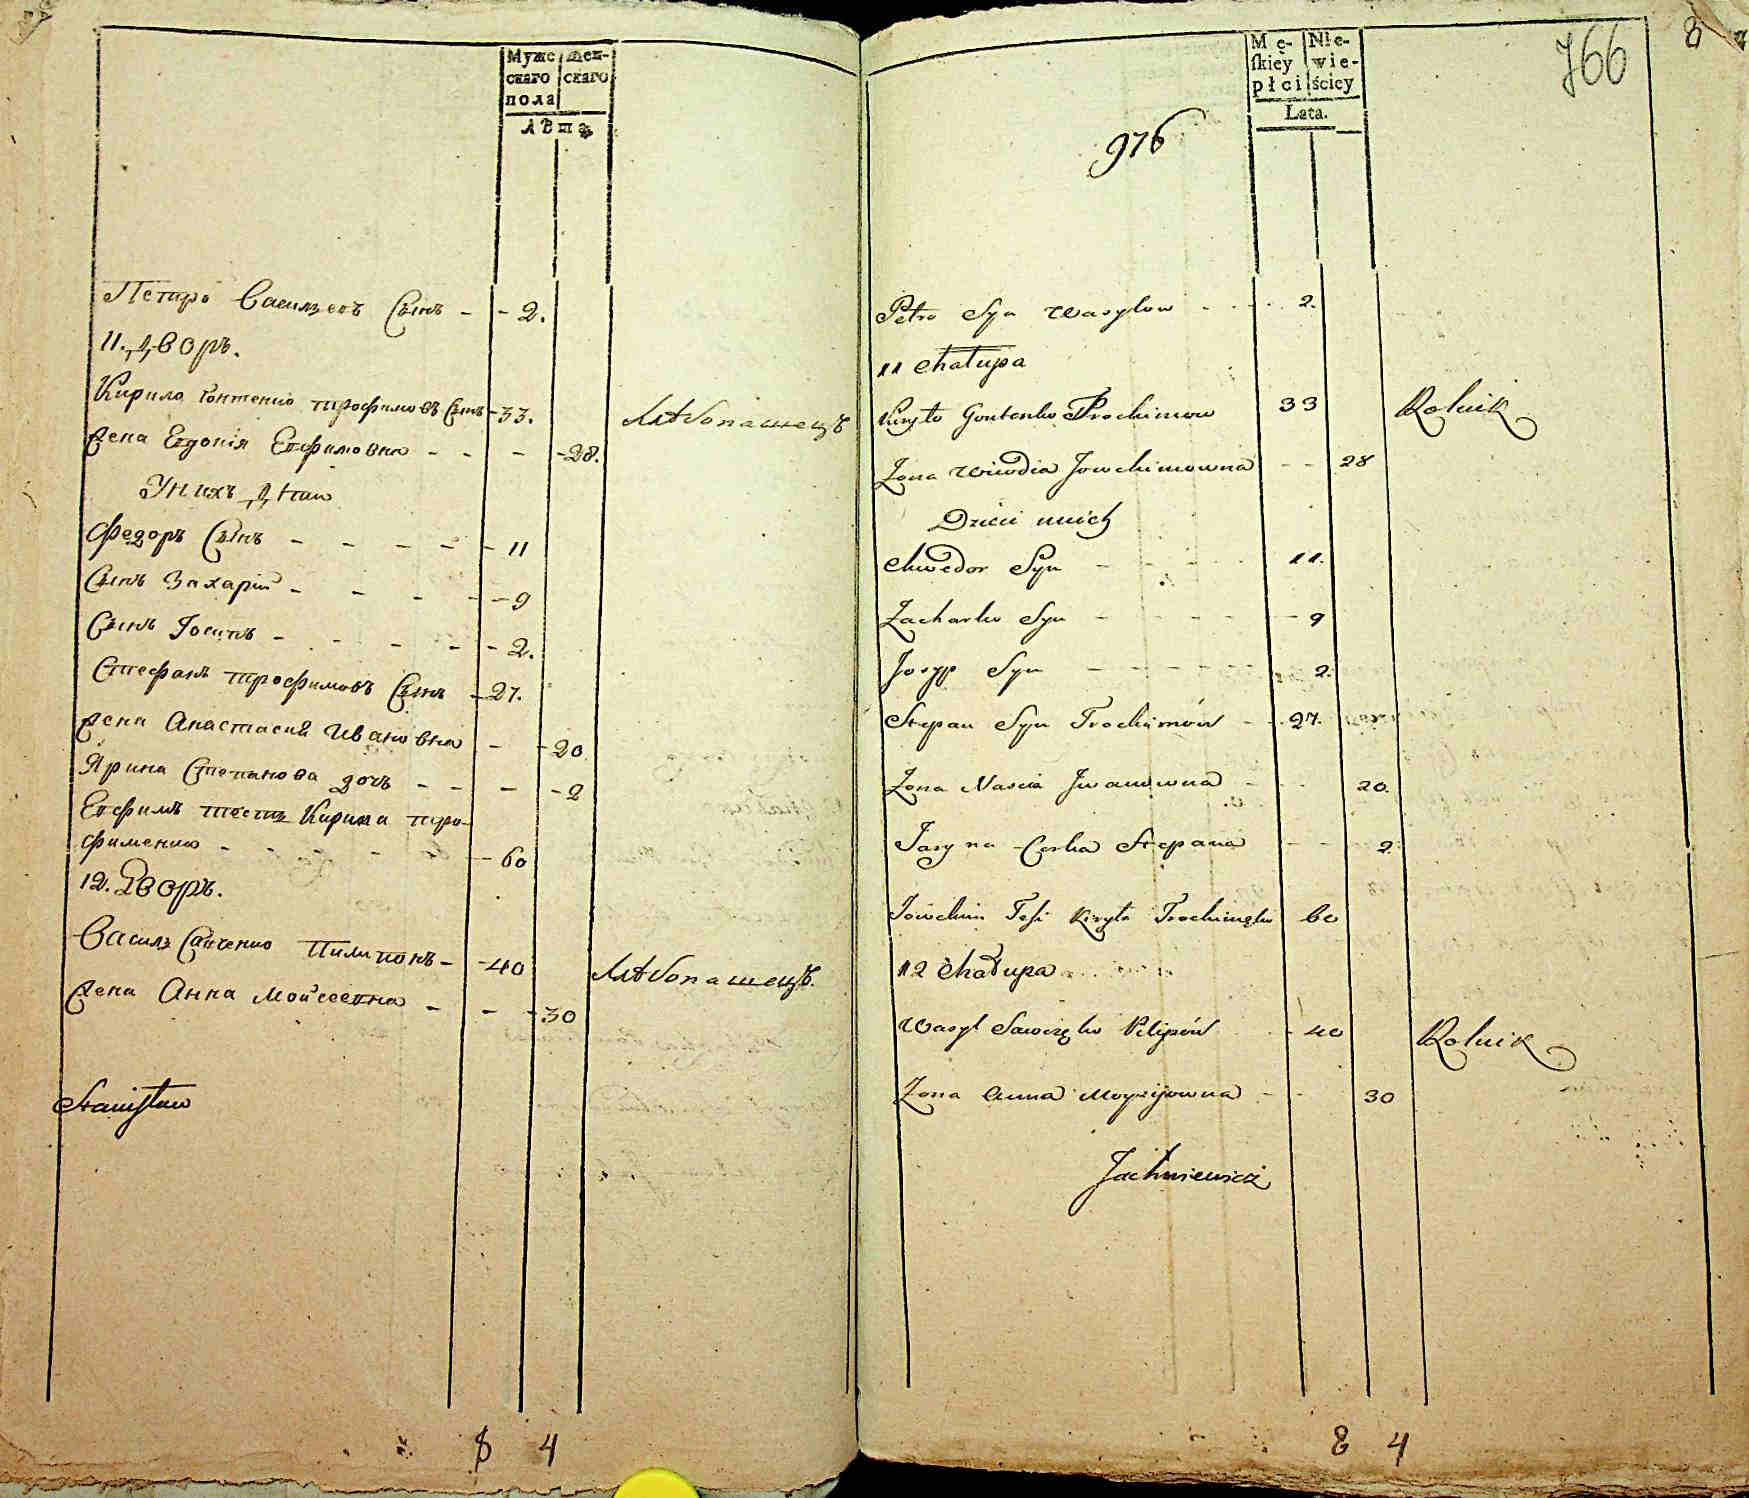 Муже
скаго
пола
Жен-
скаго
Лѣта
Петро Васильевъ Сынъ - - 2.
11. Дворъ.
Кирило Гонтенко Трофимовъ Сынъ - 33.
Хлѣбопашецъ
Жена Евдокія Евфимовна - - - 28.
У нихъ Дѣти
Федоръ Сынъ - - - - - 11
Сынъ Захарій - - - - - 9
Сынъ Іосипъ - - - - - 2.
Стефанъ Трофимовъ Сынъ - 27.
Жена Анастасия Ивановна - - 20
Ярина Степанова дочь - - - - 2
Евфимъ тесть Кирила Тро-
фименко - - - - - 60
12. Дворъ.
Василь Савченко Пилиповъ - - 40
Хлѣбопашецъ.
Жена Анна Мойсеевна - - - 30
Stanisław
8 4
8
766
976
Mę-
skiey
płci
Nie-
wie-
ściey
Lata.
Petro Syn Wasylow - - - 2.
11 Chałupa
Kiryło Gontenko Trochimow 33
Rolnik
Zona Wiwdia Jowchimowna - - 28
Dzieci unich
Chwedor Syn - - - 11.
Zacharko Syn - - - - - 9
Josyp Syn - - - - - - 2.
Stepan Syn Trochimów - - 27.
Zona Nascia Jwanowna - - 20.
Jaryna Corka Stepana - - 2.
Jowchim Teść Kiryła Trochimęka 60
12 Chałupa
Wasyl Sawczęko Pilipów - 40
Rolnik
Zona Anna Moyzijowna - - 30
Jachniewicz
8 4